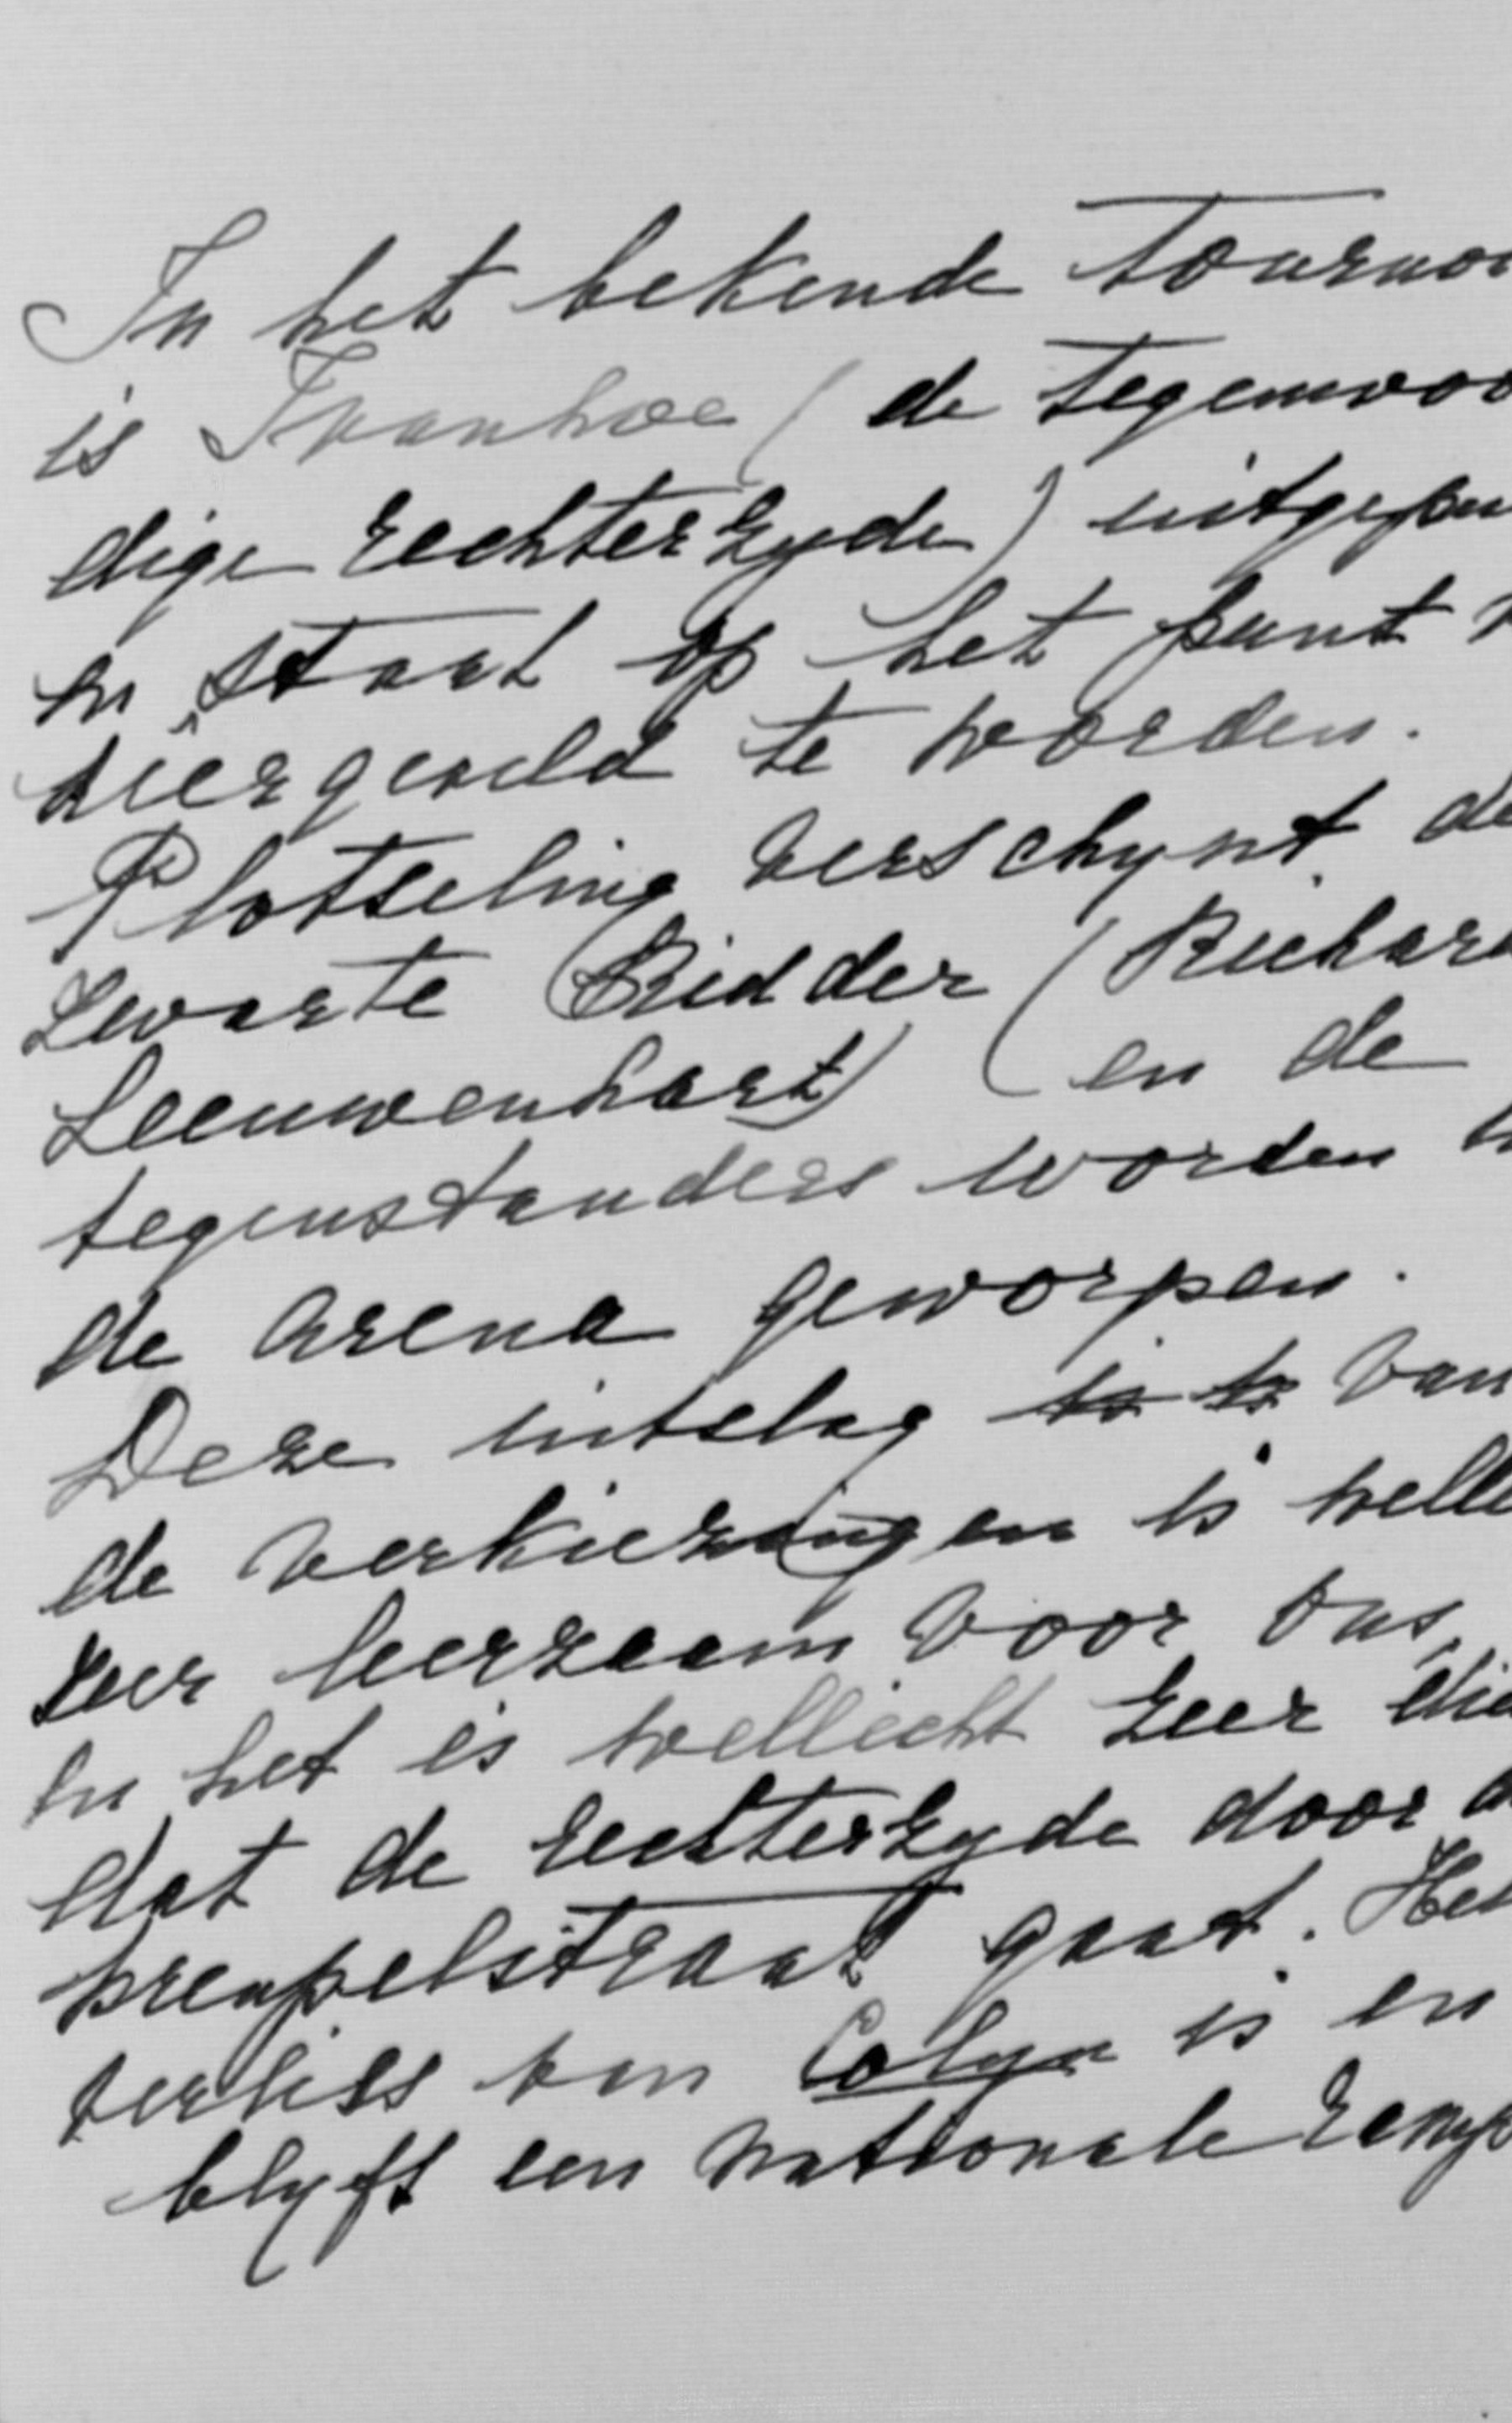 In het bekende Tournoi
is Ivanhoe (de tegenwoor
dige rechterzyde) uitgepu
en staat op het punt
neergeveld te worden.
Plotseling verschynt de
Zwarte Ridder (Richard
Leeuwenhart) en de
tegenstanders worden in
de arena geworpen.
Deze uitslag van
de verkiezingen is welli
zeer leerzaam voor ons,
en het is wellicht zeer
dat de rechterzyde door
gaat. Het
verlies van Colyn is en
blyft een nationale ramp